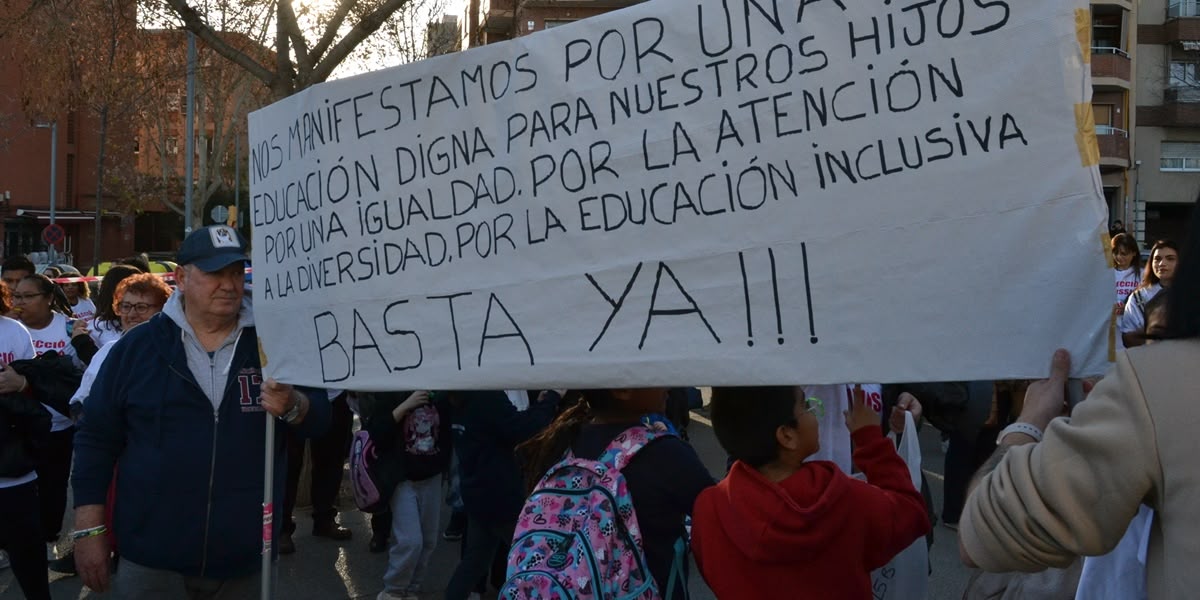 NOS MANIFESTAMOS POR UNA
EDUCACIÓN DIGNA PARA NUESTROS HIJOS
POR UNA IGUALDAD. POR LA ATENCIÓN
A LA DIVERSIDAD. POR LA EDUCACIÓN INCLUSIVA
BASTA YA!!!
13